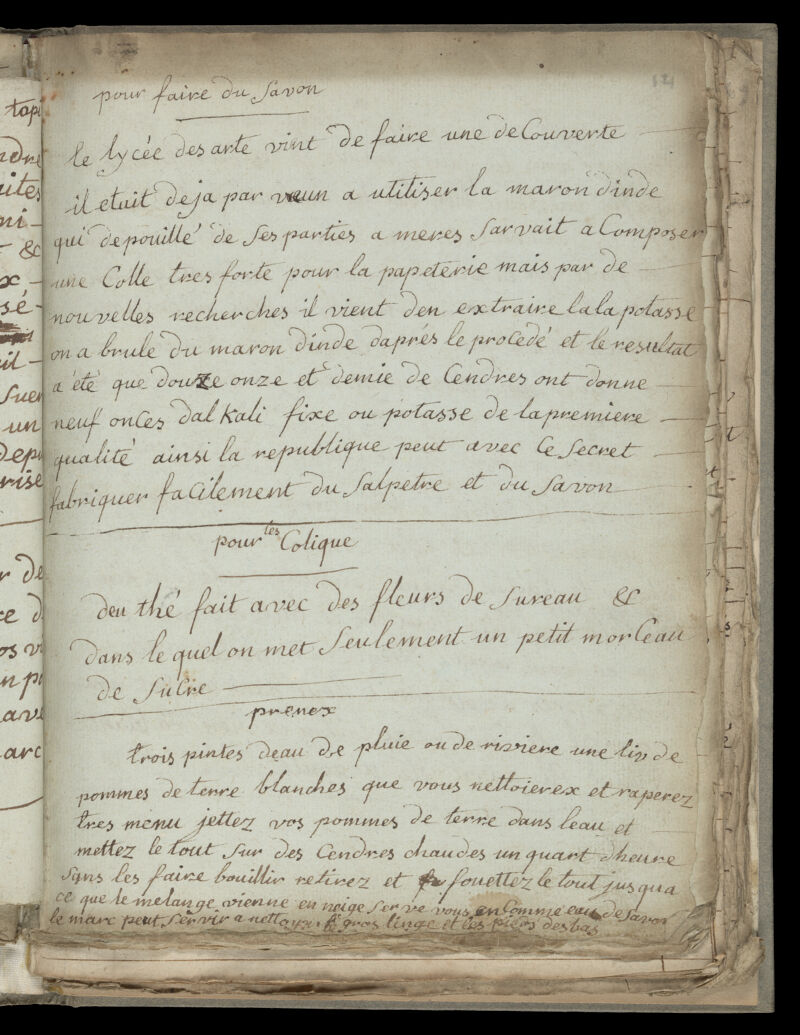 121
pour faire du savon
le lycée des arte vint de faire une deCouverte
il etait deja par veun a utitiser la maron dinde
qui depouillé de ses parties a meres sarvait a Composer
une Colle tres forte pour la papeterie mais par de
nouvelles recherches il vient den extraire la la potasse
on a brule du maron dinde daprés le procedé et le resultat
a été que douze onze et demie de Cendres ont donne
neuf onces dalkali fixe ou potasse de la premiere
qualité ainsi la republique peut avec Ce secret
fabriquer facilement du salpetre et du savon
pour les Colique
deu thé fait avec des fleurs de sureau &
dans le quel on met seulement un petit morCeau
de suCre
prenex
trois pintes deau de pluie ou de riviere une liv de
pommes de terre blanches que vous nettoierex et raperez
tres menu jettez vos pommes de terre dans leau et
mettez le tout sur des Cendres chaudes un quart dheure
sans les faire bouillir retirez et fouettez le tout jusqua
ce que le melange vienne en neige serve vous en Comme eau de savon
le marc peut servir a nettoyer le gros linge et les pieds des bas
tapi
ndre
uites
ni-
&
sé-
suer
un
Depu
rise